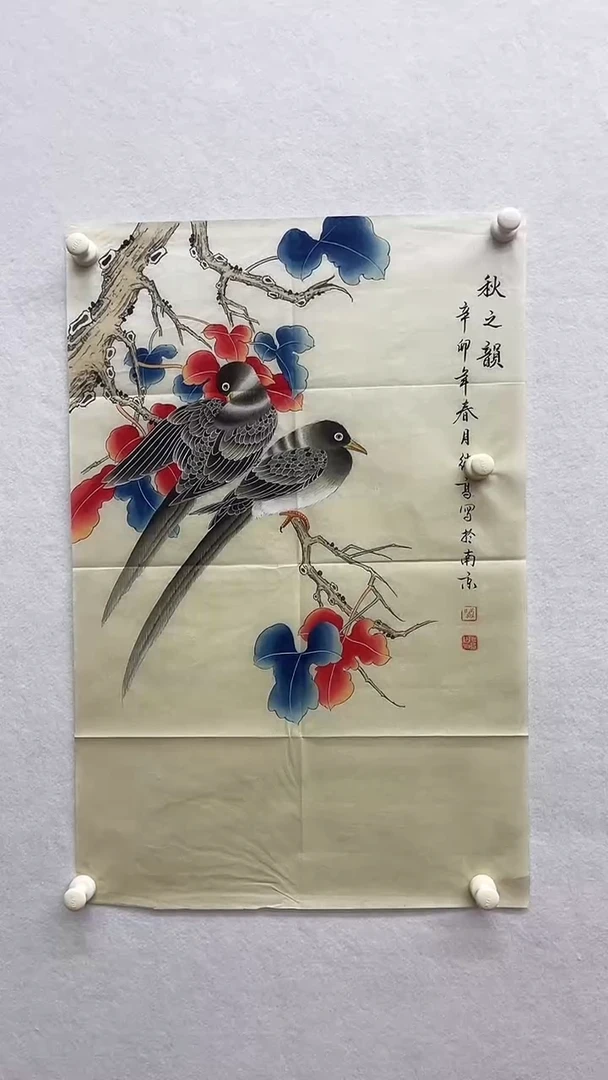 秋之韻
辛卯年春月 高写於南京